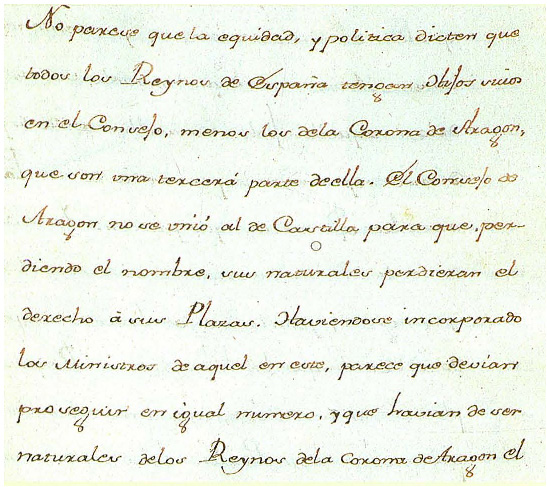 No parece que la equidad, y politica dicten que
todos los Reynos de España tengan Hijos suios
en el Consejo, menos los dela Corona de Aragon,
que son una tercerá parte de ella. El Consejo de
Aragon no se unió al de Castilla para que, per-
diendo el nombre, sus naturales perdieran el
derecho à sus Plazas. Haviendose incorporado
los Ministros de aquel en este, parece que devian
proseguir en igual numero, y que havian de ser
naturales delos Reynos dela Corona de Aragon el